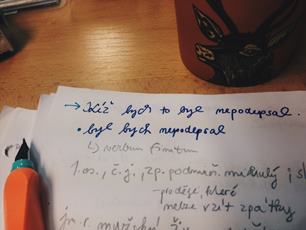 → Kéž bych to byl nepodepsal.
• byl bych nepodepsal
↳ verbum finitum
1. os., č. j., zp. podmiň. minulý, s
- poděje, které
nelze vzít zpátky